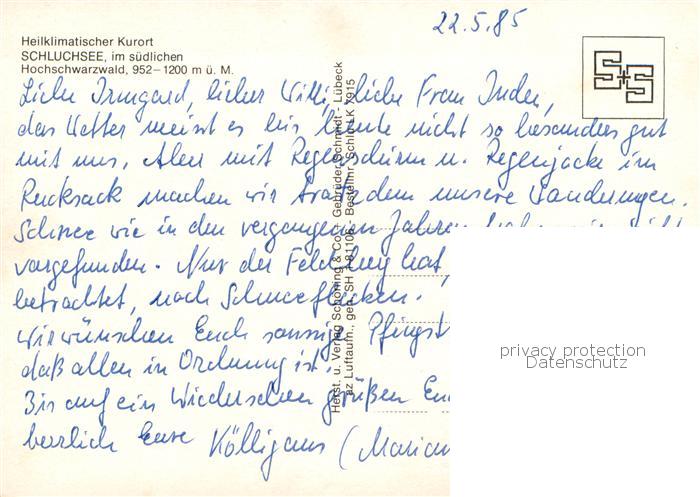 22.5.85
Heilklimatischer Kurort
SCHLUCHSEE, im südlichen
Hochschwarzwald, 952–1200 m ü. M.
Liebe Irmgard, lieber Willi, liebe Frau
das Wetter meint es bis heute nicht so besonders gut
mit uns. Aber mit Regenschirm u. Regenjacke im
Rucksack machen wir trotzdem unsere Wanderungen.
Schnee wie in den vergangenen Jahren haben wir nicht
vorgefunden. Nur der Feldberg hat,
betrachtet, noch Schneeflecken.
Wir wünschen Euch sonnige Pfingst
daß allen in Ordnung ist.
Bis auf ein Wiedersehen grüßen Euch
herzlich Eure Kölligans (Marian
Herst. u. Verlag Schöning & Co · Gebrüder Schmidt - Lübeck
az Luftaufn., gen. SH - Bestellnr. Schlu LK
S+S
privacy protection
Datenschutz